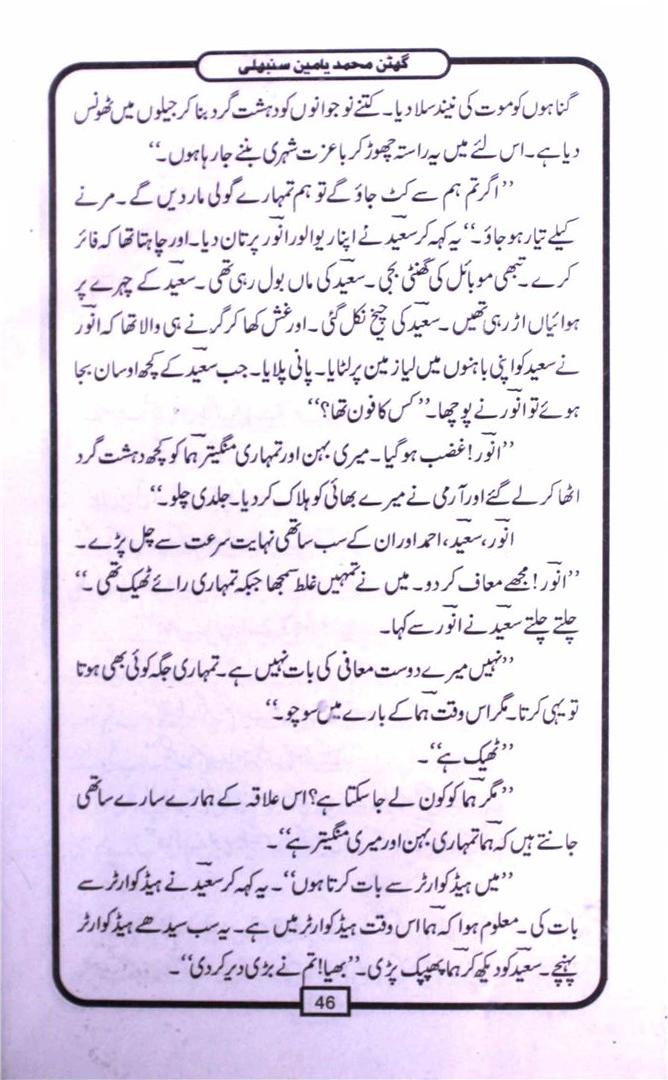 گھٹن محمد یامین سنبھلی
گناہوں کو موت کی نیند سلا دیا۔ کتنے نوجوانوں کو دہشت گرد بنا کر جیلوں میں ٹھونس
دیا ہے۔ اس لئے میں یہ راستہ چھوڑ کر باعزت شہری بننے جا رہا ہوں۔‘‘
’’اگر تم ہم سے کٹ جاؤ گے تو ہم تمہارے گولی مار دیں گے۔ مرنے
کیلے تیار ہو جاؤ۔‘‘ یہ کہہ کر سعید نے اپنا ریوالور انور پر تان دیا۔ اور چاہتا تھا کہ فائر
کرے۔ تبھی موبائل کی گھنٹی بجی۔ سعید کی ماں بول رہی تھی۔ سعید کے چہرے پر
ہوائیاں اڑ رہی تھیں۔ سعید کی چیخ نکل گئی۔ اور غش کھا کر گرنے ہی والا تھا کہ انور
نے سعید کو اپنی باہنوں میں لیا زمین پر لٹایا۔ پانی پلایا۔ جب سعید کے کچھ اوسان بجا
ہوئے تو انور نے پوچھا۔ ’’کس کا فون تھا؟‘‘
’’انور! غضب ہو گیا۔ میری بہن اور تمہاری منگیتر ہما کو کچھ دہشت گرد
اٹھا کر لے گئے اور آرمی نے میرے بھائی کو ہلاک کر دیا۔ جلدی چلو۔‘‘
انور، سعید، احمد اور ان کے سب ساتھی نہایت سرعت سے چل پڑے۔
’’انور! مجھے معاف کر دو۔ میں نے تمہیں غلط سمجھا جبکہ تمہاری رائے ٹھیک تھی۔‘‘
چلتے چلتے سعید نے انور سے کہا۔
’’نہیں میرے دوست معافی کی بات نہیں ہے۔ تمہاری جگہ کوئی بھی ہوتا
تو یہی کرتا۔ مگر اس وقت ہما کے بارے میں سوچو۔‘‘
’’ٹھیک ہے‘‘۔
’’مگر ہما کو کون لے جا سکتا ہے؟ اس علاقہ کے ہمارے سارے ساتھی
جانتے ہیں کہ ہما تمہاری بہن اور میری منگیتر ہے‘‘۔
’’میں ہیڈ کوارٹر سے بات کرتا ہوں‘‘۔ یہ کہہ کر سعید نے ہیڈ کوارٹر سے
بات کی۔ معلوم ہوا کہ ہما اس وقت ہیڈ کوارٹر میں ہے۔ یہ سب سیدھے ہیڈ کوارٹر
پہنچے۔ سعید کو دیکھ کر ہما پھپک پڑی۔ ’’بھیا! تم نے بڑی دیر کر دی‘‘۔
46